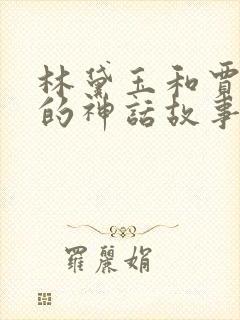 林黛玉和賈
的神話故事
羅麗娟